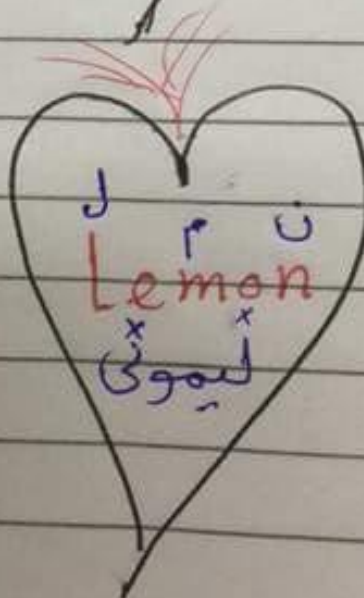 ل م ن
Lemon
x x
ليمونى